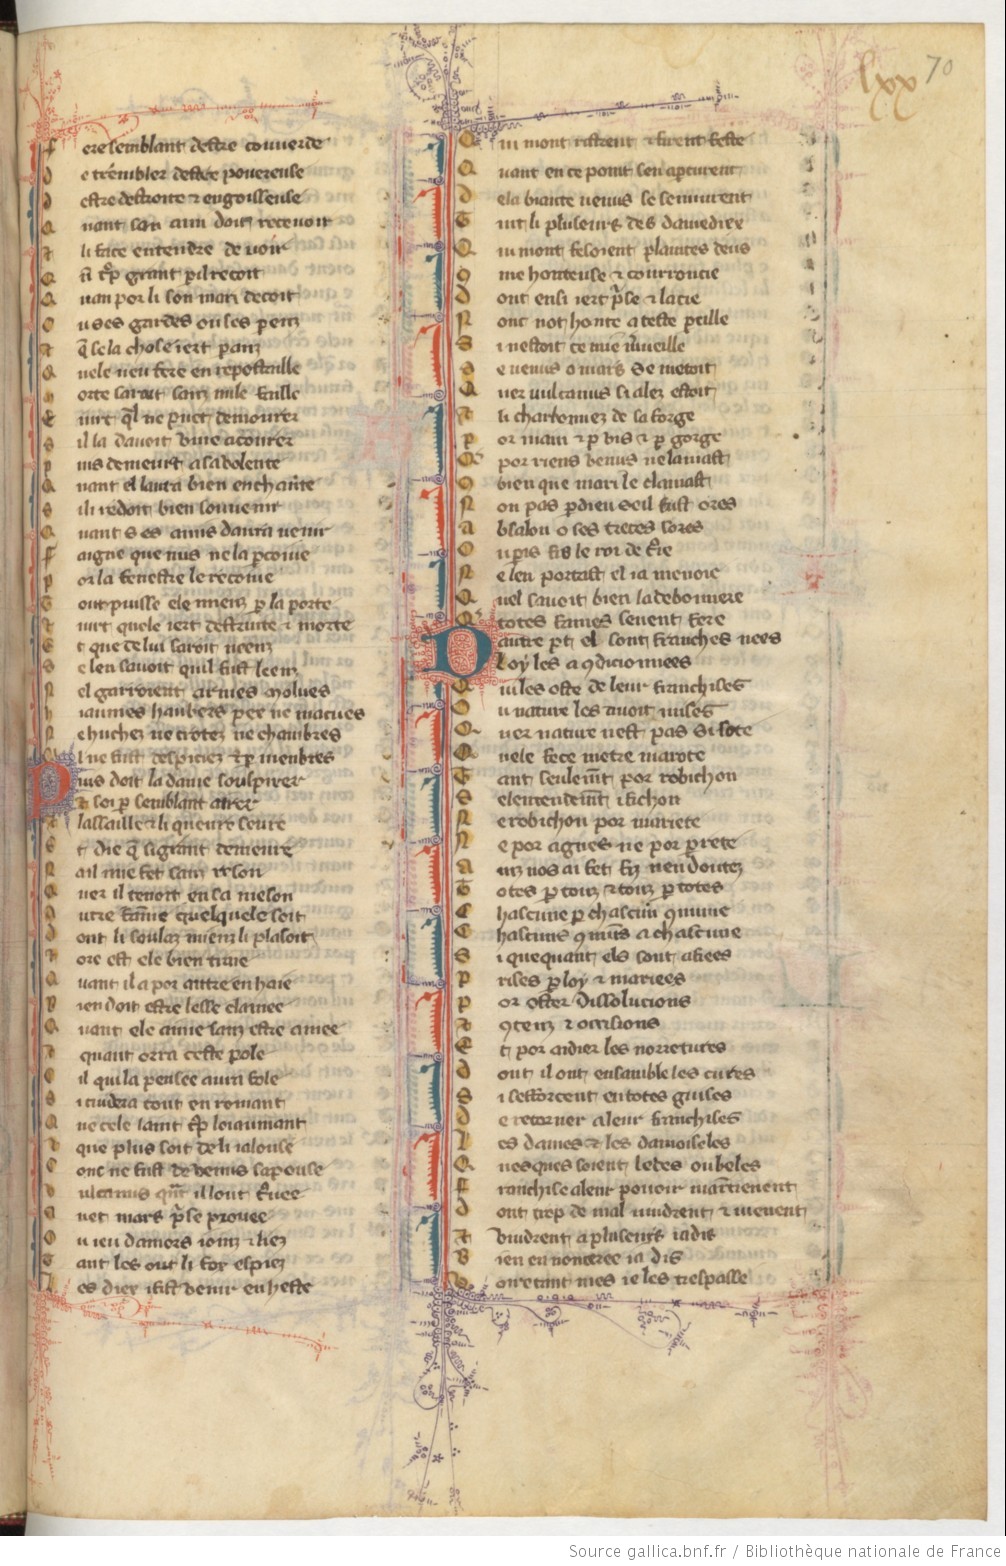 lxx 70
f ere semblant destre couuerde
d e trembler destre pouereuse
d estre destroite ⁊ engoisseuse
Q uant son ami doit receuoir
⁊ li face entendre de uoir
Q uan por li son mari decoit
O u ses gardes ou ses parenz
⁊ q̃ se la chose iert parenz
Q uele ueu fere en repostaille
M orte saroit sanz nule faille
⁊ iurt q̃l ne puet demourer
S il la deuoit uiue acourer
P uis demeurt a sa uolente
Q uant el laura bien enchante
S i li redoit bien souuenir
Q uant ses amis deura uenir
S aigne que nus ne la parcoiue
P or la fenestre le recoiue
T out puisse ele mieuz p̱ la porte
⁊ iurt quele iert destruite ⁊ morte
E t que de lui saroit neenz
S e len sauoit quil fust leenz
N el garroient armes molues
h iaumes haubers pex ne macues
N e huches ne crotez ne chambres
Q l ne fust despiciez ⁊ p̱ menbres
P uis doit la dame soulpirer
⁊ soi p̱ semblant airer
⁊ lassaille ⁊ li queure seure
E t die q̃ si grant demeure
N ail mie fet sanz reson
Q uer il tenoit en sa meson
A utre fame quelquele soit
D ont li soulaz mieuz li plesoit
⁊ ore est ele bien traie
Q uant il a por autre en haie
B ien doit estre lesse clamee
Q uant ele aime sanz estre amee
⁊ quant orra ceste pole
C il qui la pensee aura fole
S i cuidera tout en romant
Q ue cele laint tp̱ loiaumant
⁊ que plus soit de li ialouse
C onc ne fust de uenus sa pouse
V ulcanus q̃nt il lout t̾uee
A uec mars p̾se prouee
O u ieu damors ioinz ⁊ liez
T ant les out li fox espiez
L es diex i fist uenir en heste
Q ui mont ristrent ⁊ firent feste
Q uant en ce point sen apcurent
D e la biaute uenus se semuirent
T uit li pluseurs des damedieu
Q ui mont fesoient plaintes deus
c me honteuse ⁊ courroucie
D ont ensi iert p̾se ⁊ lacie
N onc not honte a ceste pareille
S i nestoit ce mie m̾ueille
S e uenus o mars se metoit
Q uer uulcanus si lez estoit
⁊ li charbonniez de sa forge
P or mains ⁊ p̱ uis ⁊ p̱ gorge
Q por riens uenus ne lamast
C bien que mari le clamast
N on pas p̱ dieu seil fust ores
A bsalon o ses treces sores
O u paris fils le roi de t̾ie
N e len portast el ia menoie
Q uel sauoit bien la debonere
Q totes fames seuent fere
D autre pt el sont franches nees
Loy les a 9dicionnees
Q ui les oste de leur franchises
O u nature les auoit mises
Q uer nature nest pas si sote
Q uele fece metre marote
T ant seulem̃t por robichon
S e lentendem̃t i fichon
N e robichon por mariete
N e por agnes ne por prete
A inz nos ai fet fiz nen doutez
T otes p̱ touz ⁊ touz p̱ totes
C hascune p̱ chascun 9mune
C hascuns 9muns a chascune
S i que quant els sont afiees
P rises p̱ loy ⁊ mariees
P or oster dissolucions
⁊ 9tenz ⁊ occisions
E t por aidier les norretures
D ont il ont ensamble les cures
S i sefforcent en totes guises
D e retorner a leur franchises
L es dames ⁊ les damoiseles
Q uesques soient ledes ou beles
F ranchise a leur pouoir maintienent
D ont trop de mal uiudrent ⁊ uienent
⁊ uiudrent a pluseurs iadis
B ien en nonceree ia dis